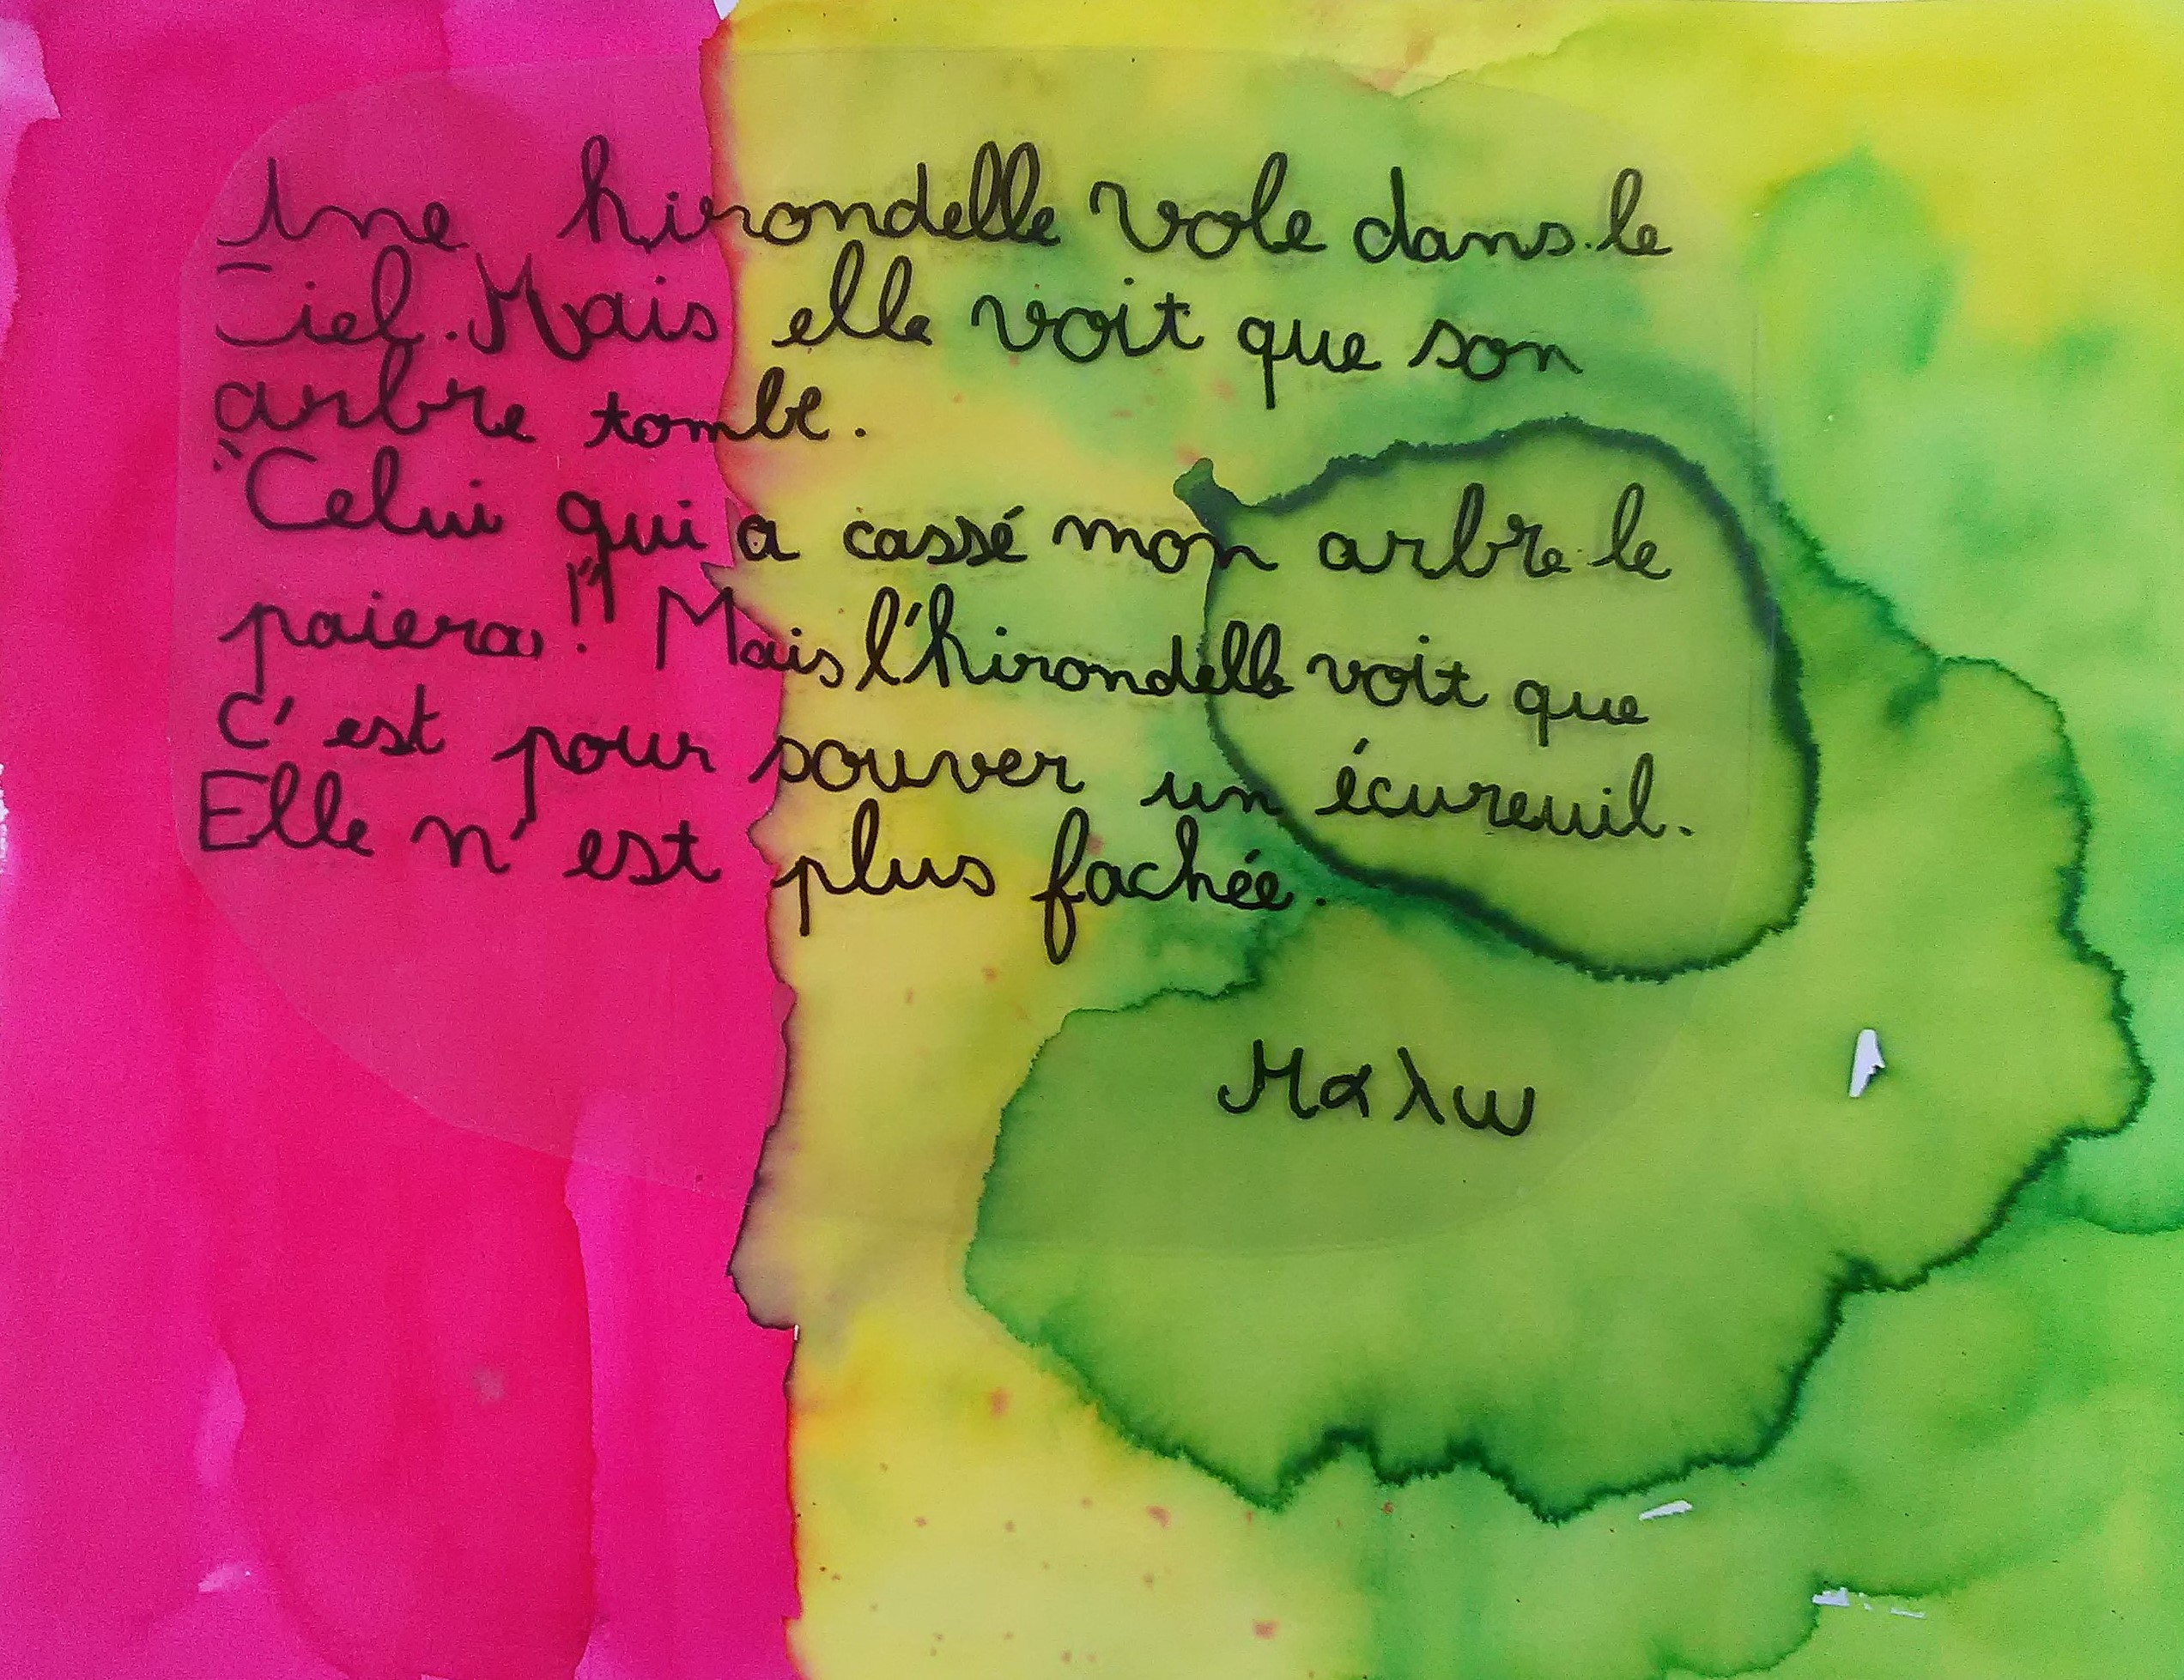 Une hirondelle vole dans le
Ciel. Mais elle voit que son
arbre tombe.
"Celui qui a cassé mon arbre le
paiera!" Mais l'hirondelle voit que
C'est pour souver un écureuil.
Elle n'est plus fachée.
Μαλω